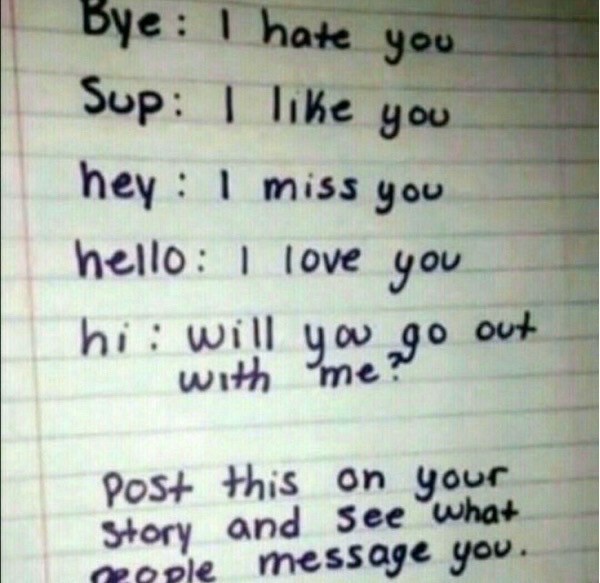 Bye: I hate you
Sup: I like you
hey: I miss you
hello: I love you
hi: will you go out
with me?
Post this on your
story and see what
people message you.